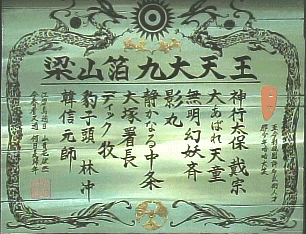 梁山箔九大天王
神行太保 戴宗
大あばれ天童
無明幻妖斉
影丸
静かなる中条
大塚署長
ディック牧
豹子頭 林冲
韓信元師